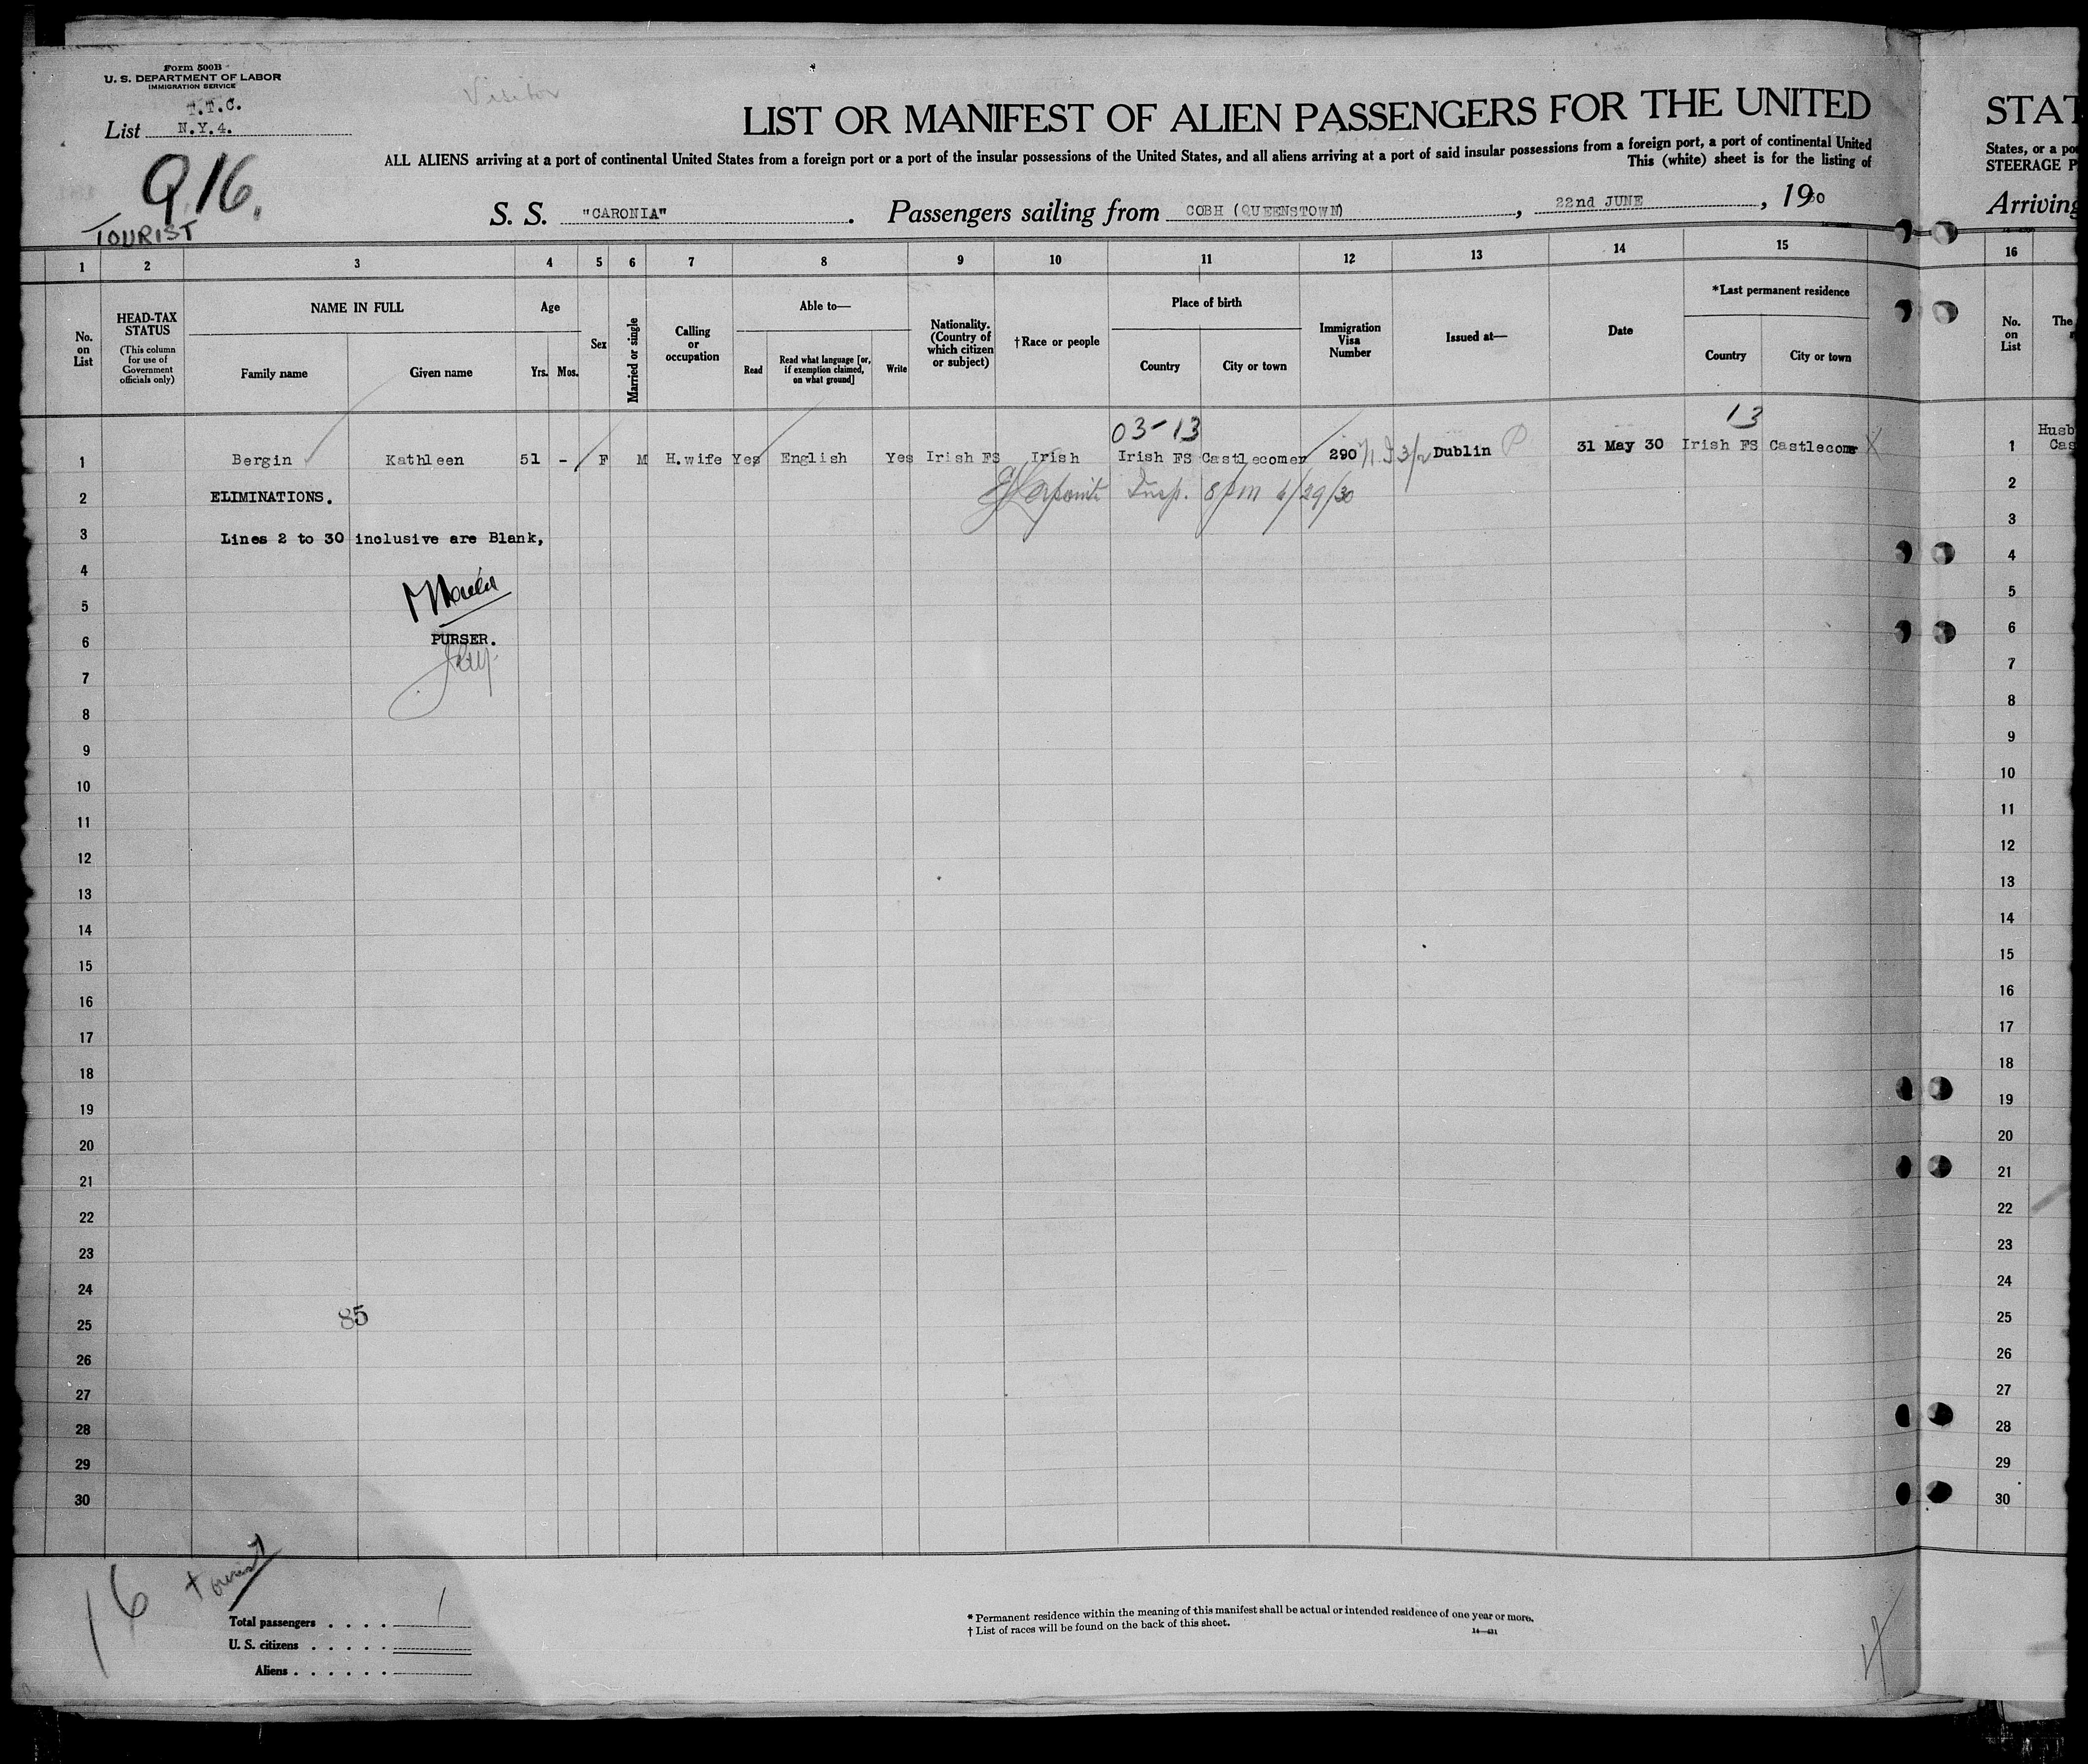 Form 500B
U. S. DEPARTMENT OF LABOR
IMMIGRATION SERVICE
T.T.C.
List N.Y.4.
Visitor
916.
TOURIST
LIST OR MANIFEST OF ALIEN PASSENGERS FOR THE UNITED
ALL ALIENS arriving at a port of continental United States from a foreign port or a port of the insular possessions of the United States, and all aliens arriving at a port of said insular possessions from a foreign port, a port of continental United
This (white) sheet is for the listing of
S. S. "CARONIA". Passengers sailing from COBH (QUEENSTOWN), 22nd JUNE, 1930
STAT
States, or a po
STEERAGE P
Arriving
1 2 3 4 5 6 7 8 9 10 11 12 13 14 15 16
No. on List
HEAD-TAX STATUS
(This column for use of Government officials only)
NAME IN FULL
Family name
Given name
Age
Yrs. Mos.
Sex
Married or single
Calling or occupation
Able to—
Read
Read what language [or, if exemption claimed, on what ground]
Write
Nationality. (Country of which citizen or subject)
†Race or people
Place of birth
Country
City or town
Immigration Visa Number
Issued at—
Date
*Last permanent residence
Country
City or town
No. on List
The
03-13
13
1 Bergin Kathleen 51 - F M H.wife Yes English Yes Irish FS Irish Irish FS Castlecomer 290 Dublin P 31 May 30 Irish FS Castlecomer X 1 Husb
Cas
2 ELIMINATIONS. Insp. 8 pm 6/29/30 2
3 Lines 2 to 30 inclusive are Blank, 3
4 4
5 5
6 PURSER. 6
7 7
8 8
9 9
10 10
11 11
12 12
13 13
14 14
15 15
16 16
17 17
18 18
19 19
20 20
21 21
22 22
23 23
24 24
85
25 25
26 26
27 27
28 28
29 29
30 30
16
Tourist
Total passengers . . . . 1
U. S. citizens . . . . .
Aliens . . . . . .
* Permanent residence within the meaning of this manifest shall be actual or intended residence of one year or more.
† List of races will be found on the back of this sheet.